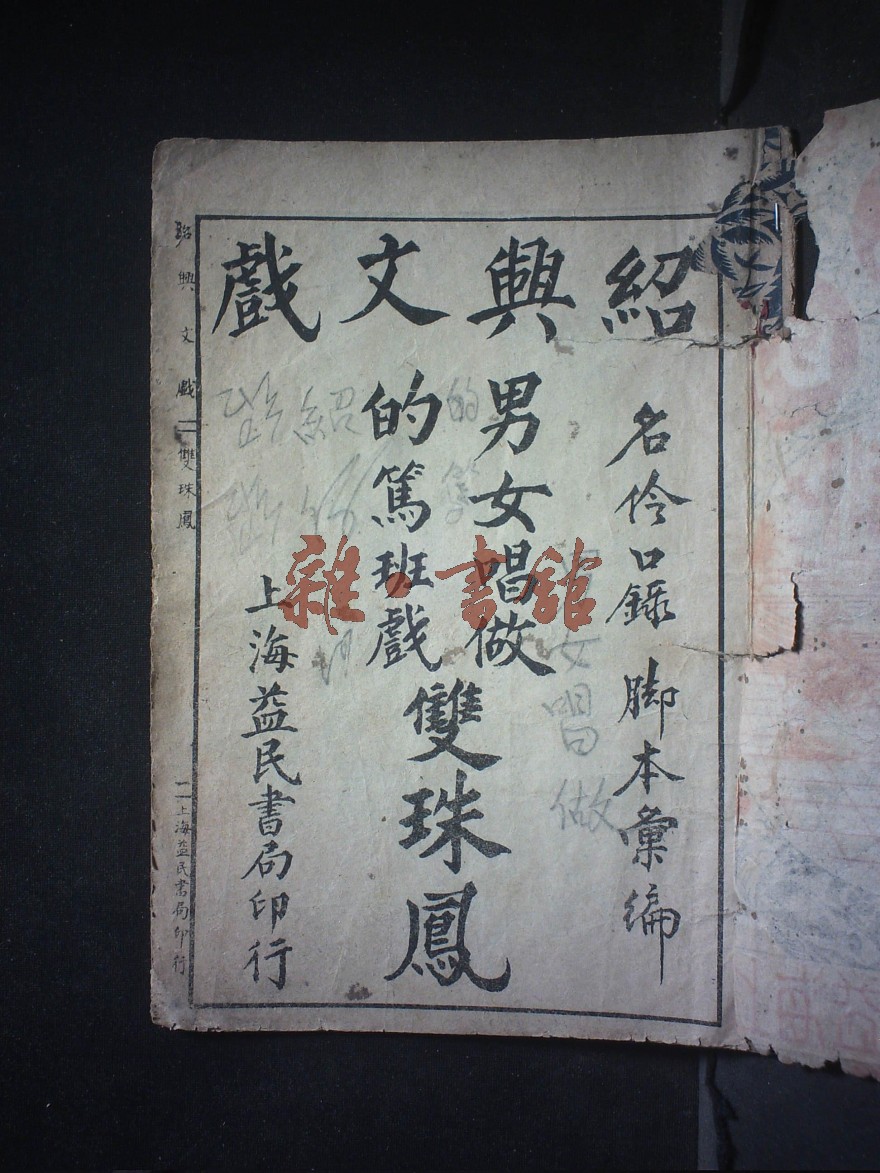 紹興文戲
名伶口錄 脚本彙編
男女唱做
的篤班戲
雙珠鳳
上海益民書局印行
紹興文戲 雙珠鳳
上海益民書局印行
雜·書館
的篤
女唱做
紹